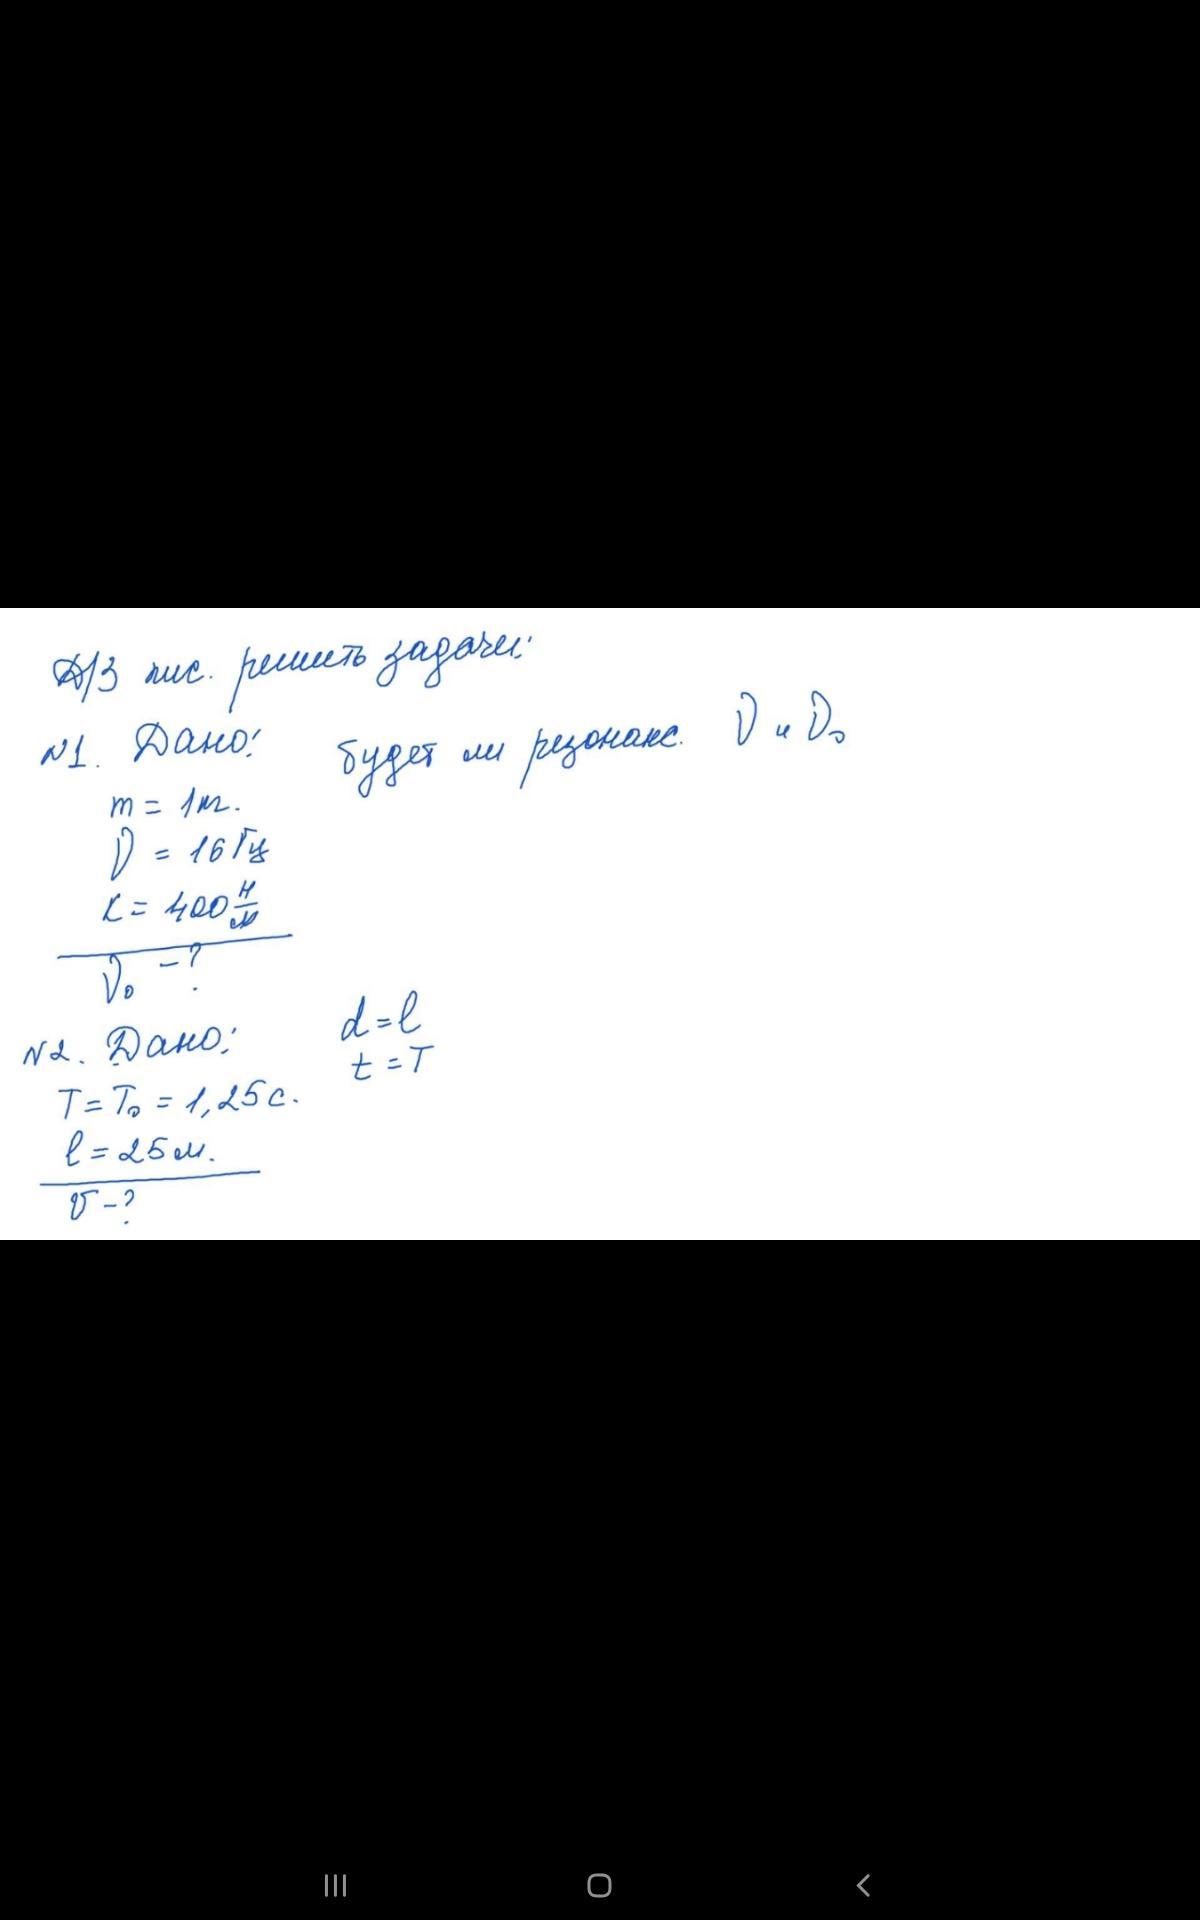 Д/З пис. решить задачи:
№1. Дано: будет ли резонанс. ν и ν₀
m = 1кг.
ν = 16 Гц
K = 400 Н/м
ν₀ - ?
№2. Дано: d = l
t = T
T = T₀ = 1,25 с.
l = 25 м.
υ - ?